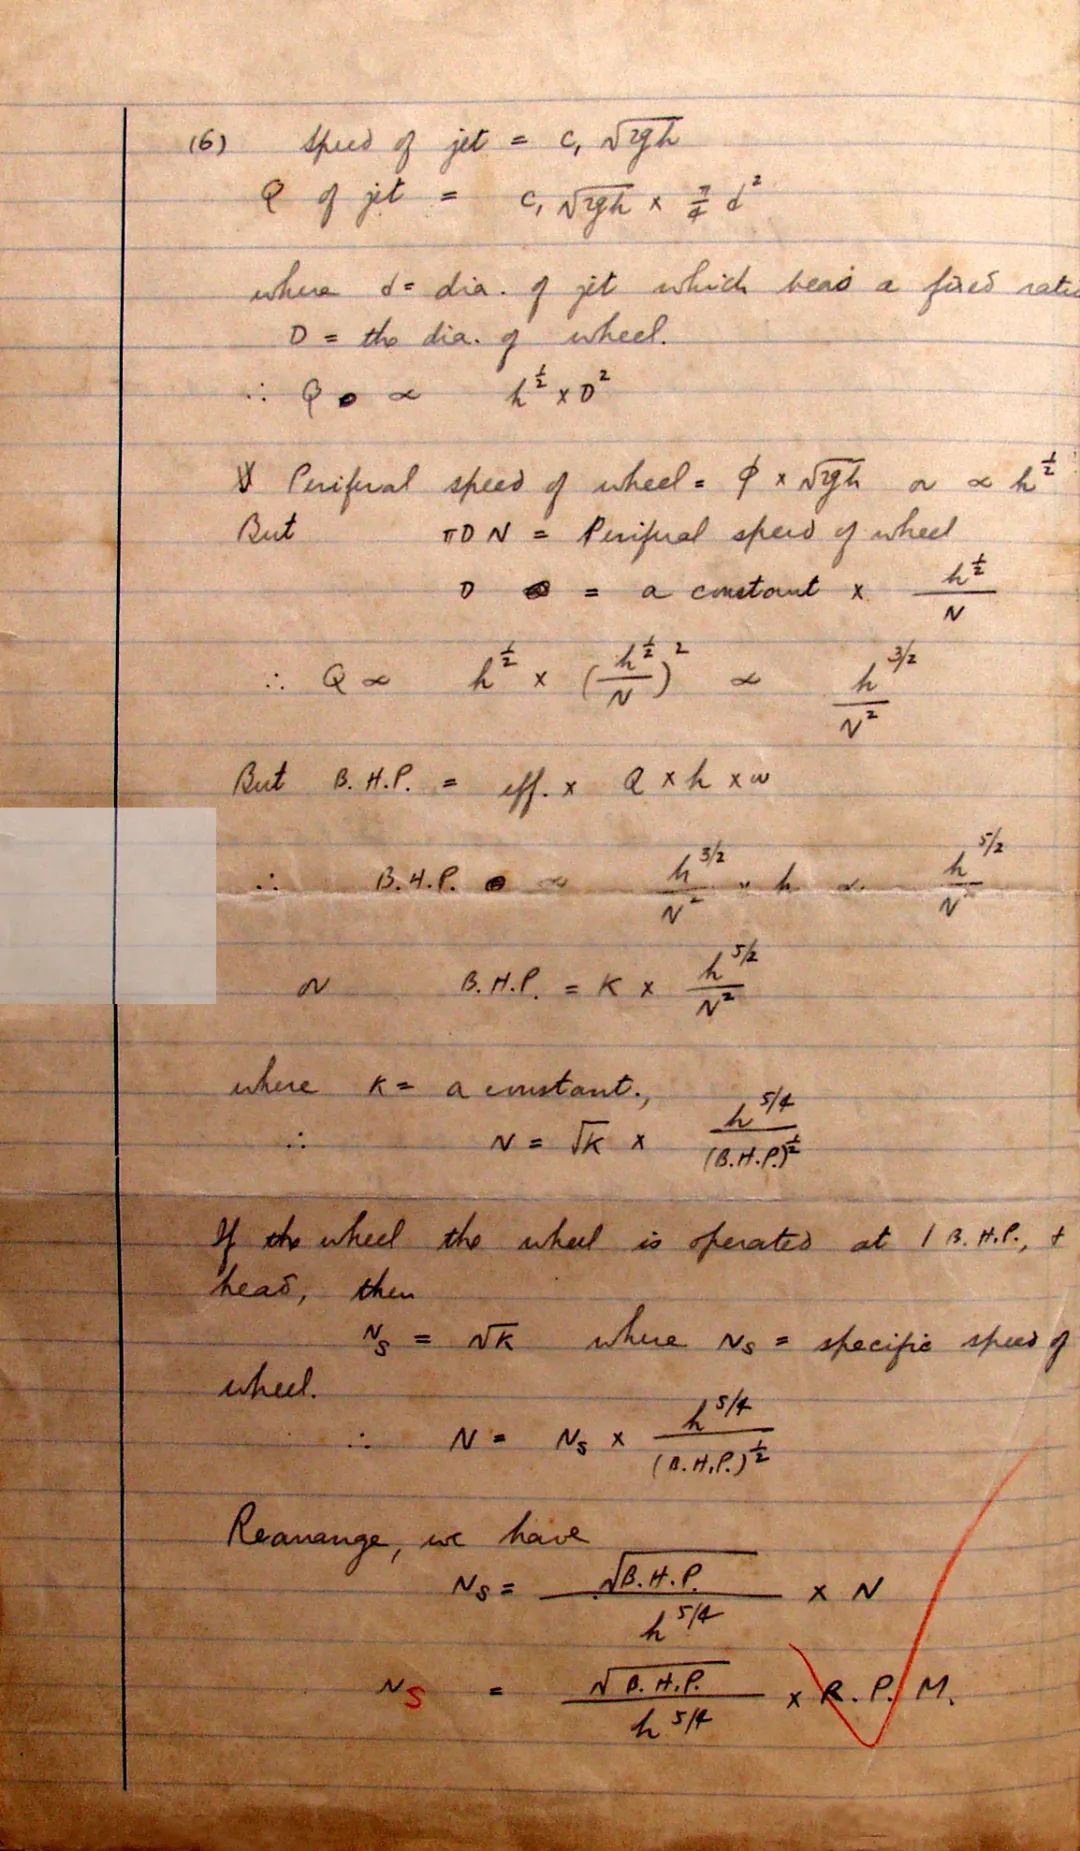 (6) Speed of jet = c₁ √2gh
Q of jet = c₁ √2gh × π/4 d²
where d = dia. of jet which bears a fixed ratio
D = the dia. of wheel.
∴ Q ∝ h^½ × D²
Periferal speed of wheel = φ × √2gh or ∝ h^½
But πDN = Periferal speed of wheel
D = a constant × h^½/N
∴ Q ∝ h^½ × (h^½/N)² ∝ h^3/2/N²
But B.H.P. = eff. × Q × h × w
∴ B.H.P. ∝ h^3/2/N² × h ∝ h^5/2/N²
or B.H.P. = K × h^5/2/N²
where K = a constant.,
∴ N = √K × h^5/4/(B.H.P.)^½
If the wheel the wheel is operated at 1 B.H.P., +
head, then
Ns = √K where Ns = specific speed of
wheel.
∴ N = Ns × h^5/4/(B.H.P.)^½
Rearange, we have
Ns = √B.H.P./h^5/4 × N
Ns = √B.H.P./h^5/4 × R.P.M.